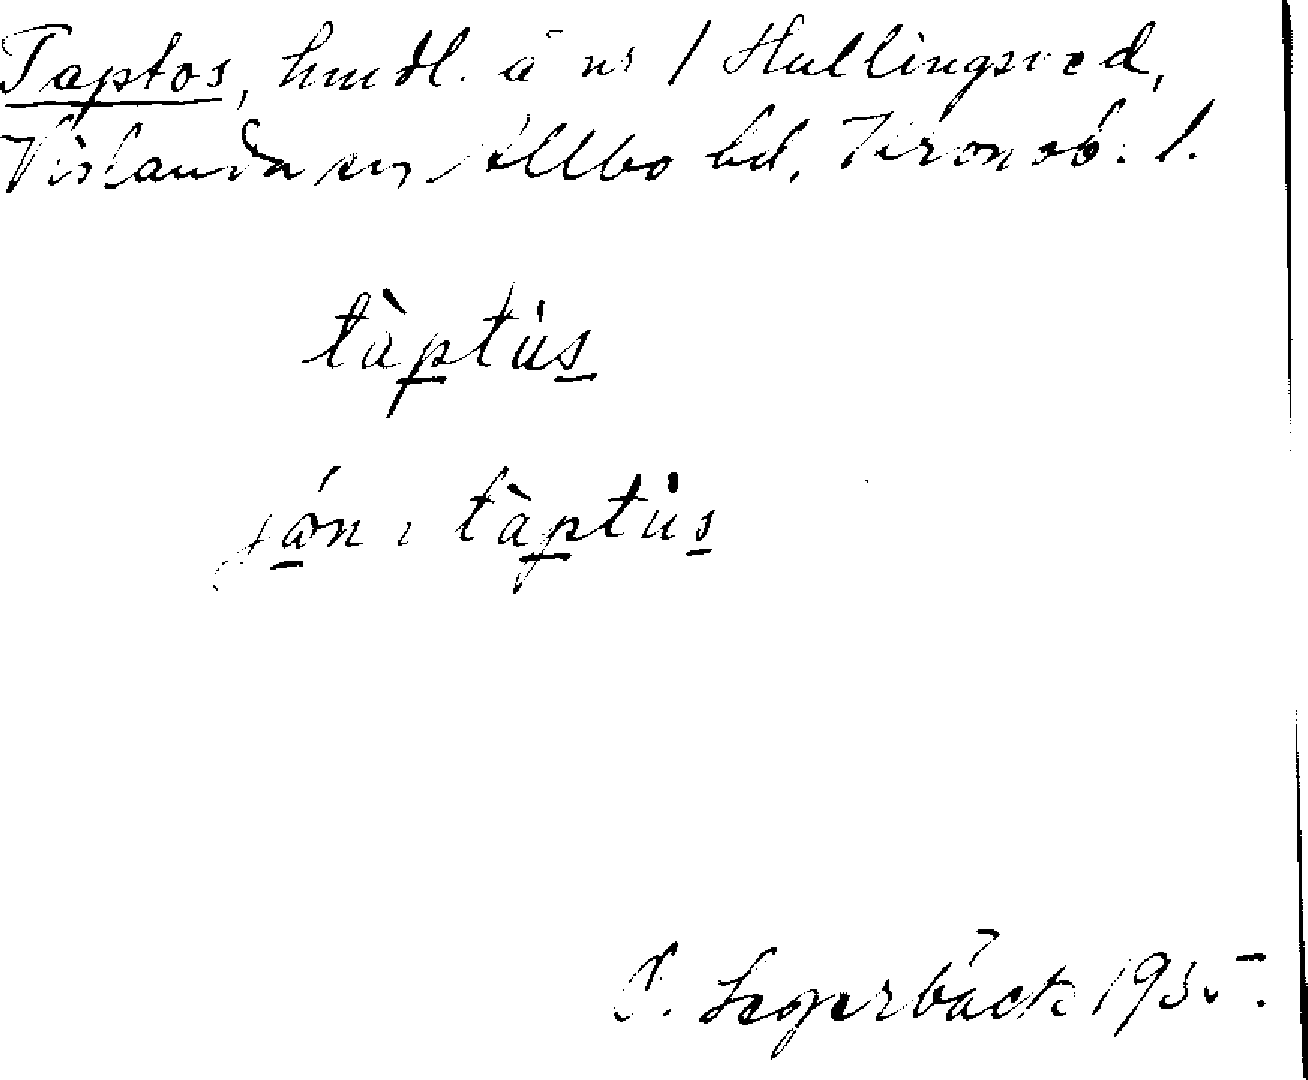 Taptos, hmdl. å nr 1 Hallingsved,
Vislanda sn, Allbo hd, Kronob. l.
tàptùs
i tàptùs
Segerbäck 1935.